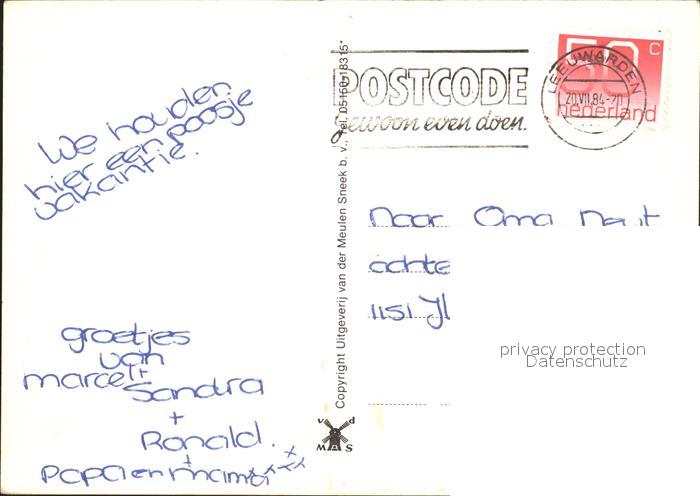 We houden
hier een poosje
vakantie.
groetjes
van
marcel +
Sandra
+
Ronald.
+
Papa en mama xxxx
Copyright Uitgeverij van der Meulen Sneek b. v., Tel. 05150-18315*
v d
M S
POSTCODE
gewoon even doen.
LEEUWARDEN
20.VII.84.-20
50 c
nederland
Naar Oma
achte
1151 Jl
privacy protection
Datenschutz